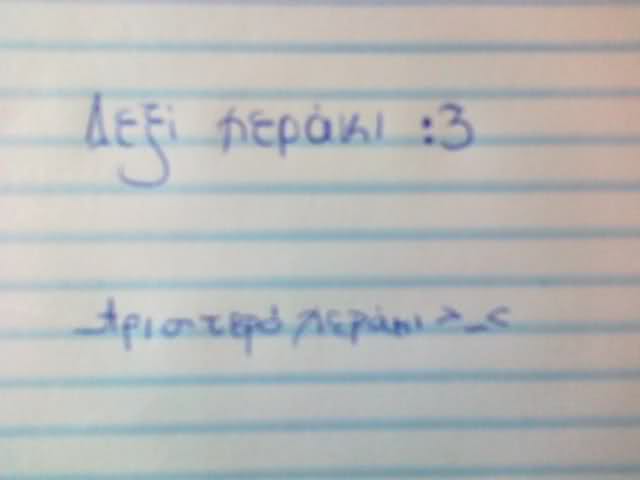 Δεξί περάκι :3
Αριστερό περάκι >_<